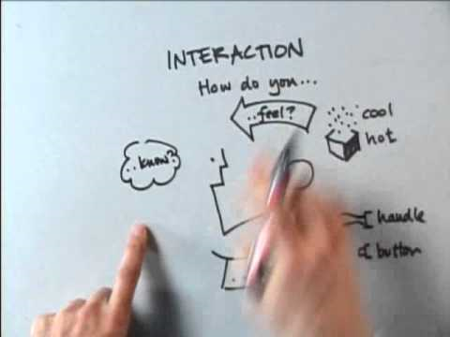 INTERACTION
How do you...
..feel?
cool
hot
..know?
handle
button